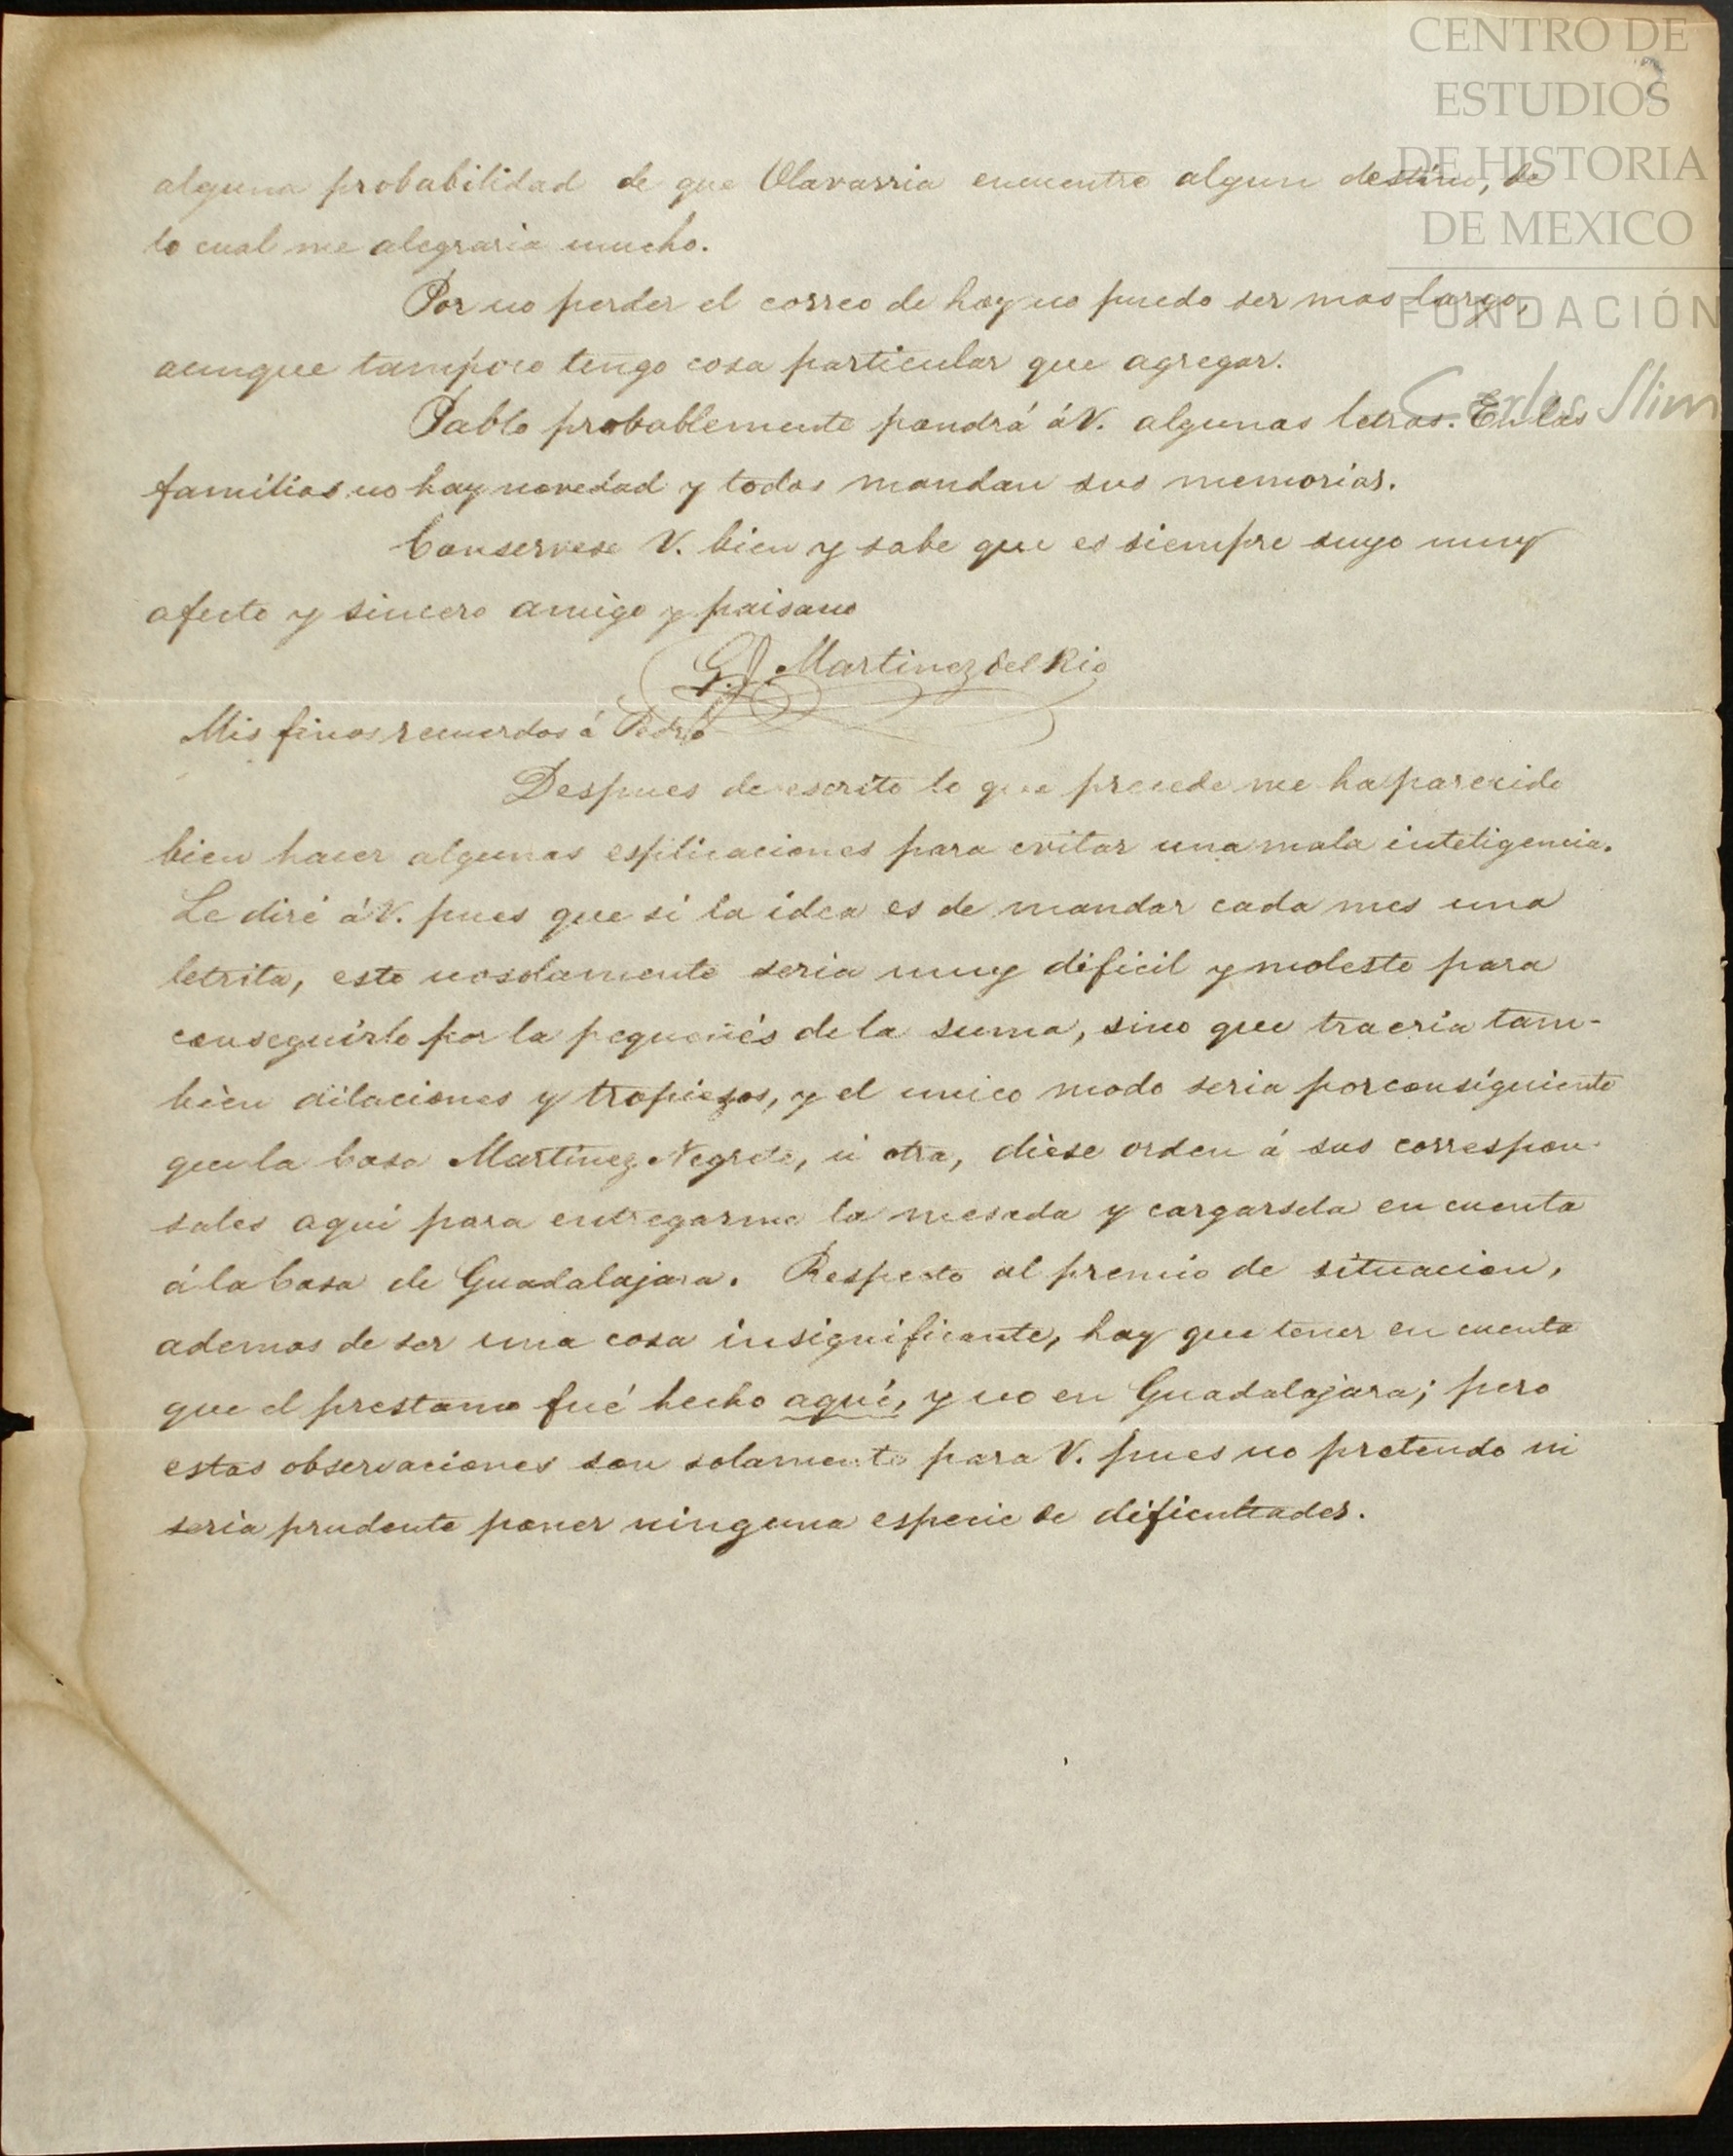 CENTRO DE
ESTUDIOS
DE HISTORIA
DE MEXICO
FUNDACIÓN
Carlos Slim
alguna probabilidad de que Olavarria encuentre algun destino, de
lo cual me alegraria mucho.
Por no perder el correo de hoy no puedo ser mas largo,
aunque tampoco tengo cosa particular que agregar.
Pablo probablemente pondrá á V. algunas letras. En las
familias no hay novedad y todos mandan sus memorias.
Conservese V. bien y sabe que es siempre suyo muy
afecto y sincero amigo y paisano
G. J. Martinez del Rio
Mis finos recuerdos á Pedro
Despues de escrito lo que precede me ha parecido
bien hacer algunas esplicaciones para evitar una mala inteligencia.
Le diré á V. pues que si la idea es de mandar cada mes una
letrita, esto no solamente seria muy dificil y molesto para
conseguirlo por la pequeñés de la suma, sino que traeria tam-
bien dilaciones y tropiezos, y el unico modo seria por consiguiente
que la Casa Martinez Negrete, ú otra, diése orden á sus correspon-
sales aqui para entregarme la mesada y cargarsela en cuenta
á la Casa de Guadalajara. Respecto al premio de situacion,
ademas de ser una cosa insignificante, hay que tener en cuenta
que el prestamo fué hecho aquí, y no en Guadalajara; pero
estas observaciones son solamente para V. pues no pretendo ni
seria prudente poner ninguna especie de dificultades.